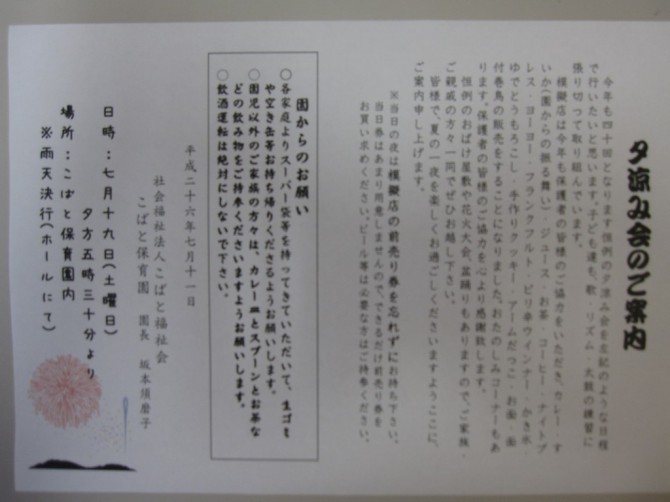 夕涼み会のご案内
今年も四十回となります恒例の夕涼み会を左記のような日程
で行いたいと思います。子ども達も、歌・リズム・太鼓の練習に
張り切って取り組んでいます。
模擬店は今年も保護者の皆様のご協力をいただき、カレー・す
いか(園からの振る舞い)・ジュース・お茶・コーヒー・ナイトブ
レス・ヨーヨー・フランクフルト・ピリ辛ウィンナー・かき氷・
ゆでとうもろこし・手作りクッキー・アームだっこ・お面・
付巻鳥の販売をすることになりました。おたのしみコーナーもあ
ります。保護者の皆様のご協力を心より感謝致します。
恒例のおばけ屋敷や花火大会、盆踊りもありますので、ご家族・
ご親戚の方々一同でぜひお越し下さい。
皆様で、夏の一夜を楽しくお過ごしくださいますようここに、
ご案内申し上げます。
※当日の夜は模擬店の前売り券を忘れずにお持ち下さい。
当日券はあまり用意しませんので、できるだけ前売り券を
お買い求めください。ビール等は必要な方はご持参ください。
園からのお願い
○各家庭よりスーパー袋等を持ってきていただいて、生ゴミ
や空き缶等お持ち帰りくださるようお願いします。
○園児以外のご家族の方々は、カレー皿とスプーンとお茶な
どの飲み物をご持参くださいますようお願いします。
○飲酒運転は絶対にしないで下さい。
平成二十六年七月十一日
社会福祉法人こばと福祉会
こばと保育園 園長 坂本須磨子
日時：七月十九日(土曜日)
夕方五時三十分より
場所：こばと保育園内
※雨天決行(ホールにて)